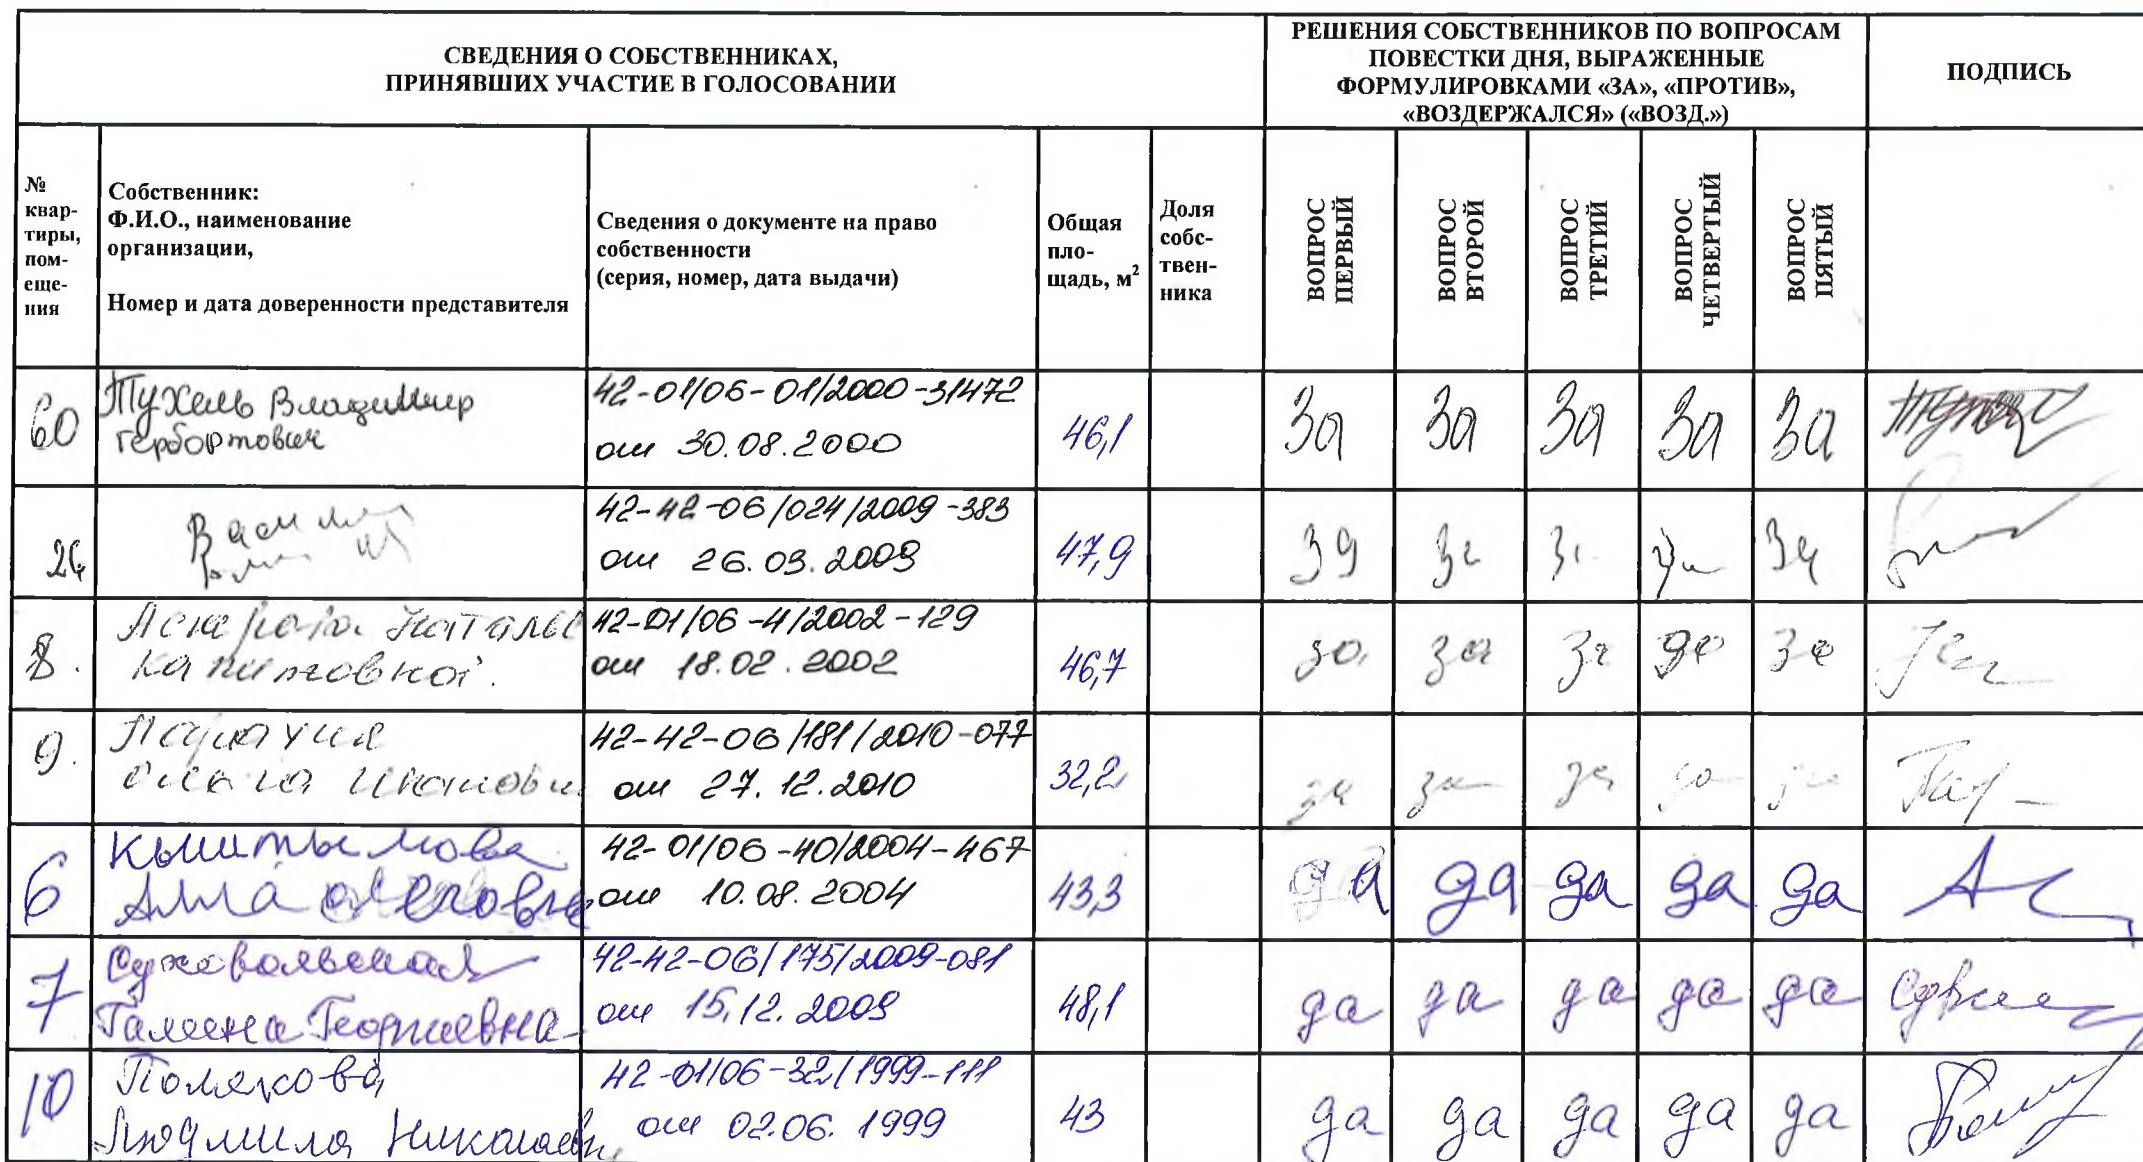 СВЕДЕНИЯ О СОБСТВЕННИКАХ,
ПРИНЯВШИХ УЧАСТИЕ В ГОЛОСОВАНИИ
РЕШЕНИЯ СОБСТВЕННИКОВ ПО ВОПРОСАМ
ПОВЕСТКИ ДНЯ, ВЫРАЖЕННЫЕ
ФОРМУЛИРОВКАМИ «ЗА», «ПРОТИВ»,
«ВОЗДЕРЖАЛСЯ» («ВОЗД.»)
ПОДПИСЬ
№
квар-
тиры,
пом-
еще-
ния
Собственник:
Ф.И.О., наименование
организации,
Номер и дата доверенности представителя
Сведения о документе на право
собственности
(серия, номер, дата выдачи)
Общая
пло-
щадь, м²
Доля
собс-
твен-
ника
ВОПРОС
ПЕРВЫЙ
ВОПРОС
ВТОРОЙ
ВОПРОС
ТРЕТИЙ
ВОПРОС
ЧЕТВЕРТЫЙ
ВОПРОС
ПЯТЫЙ
60
Тухель Владимир
Гербортович
42-01/06-01/2000-31472
от 30.08.2000
46,1
За За За За За
26
42-42-06/024/2009-383
от 26.03.2009
47,9
За За За За За
8.
Наталья
Капитовна
42-01/06-4/2002-129
от 18.02.2002
46,7
за за за за за
9.
42-42-06/181/2010-077
от 27.12.2010
32,2
за за за за за
6
Кыштымова
Алла Олеговна
42-01/06-40/2004-467
от 10.08.2004
43,3
да да да да да
7
Суховольская
Галина Георгиевна
42-42-06/175/2009-081
от 15.12.2009
48,1
да да да да да
10
Полякова
Людмила Николаевн
42-01/06-32/1999-111
от 02.06.1999
43
да да да да да